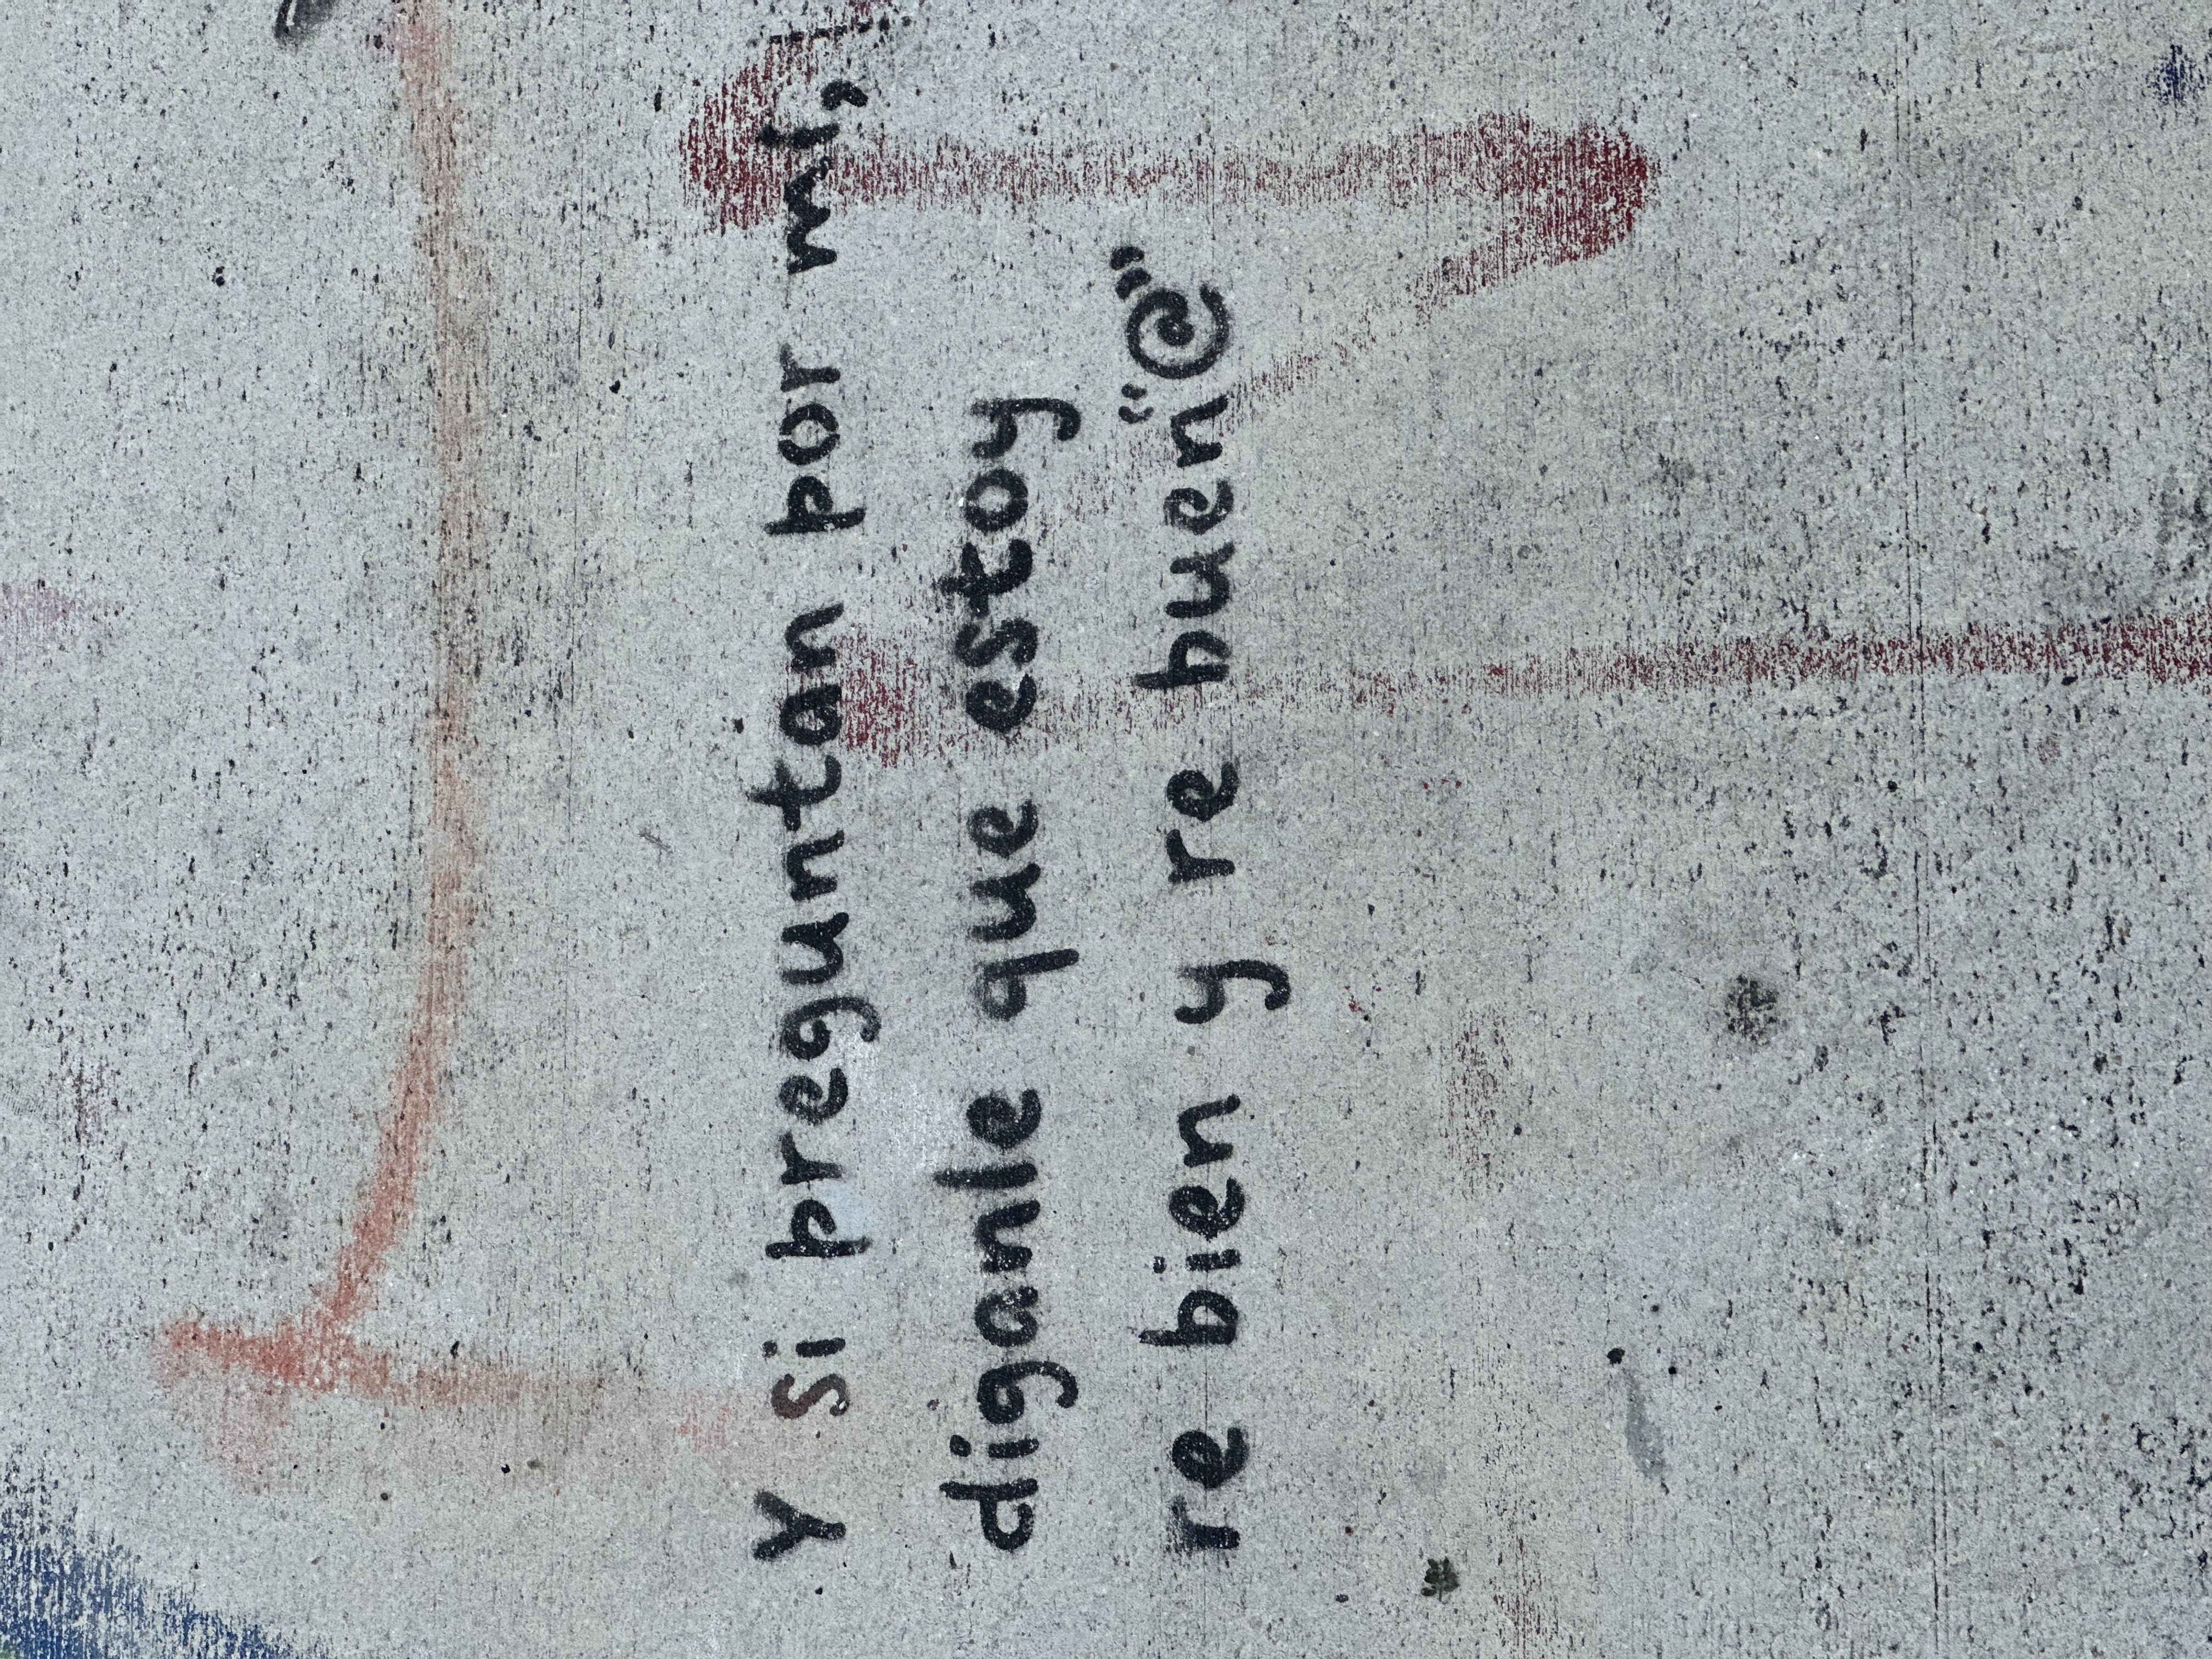 Y si preguntan por mí,
diganle que estoy
re bien y re buen"@"